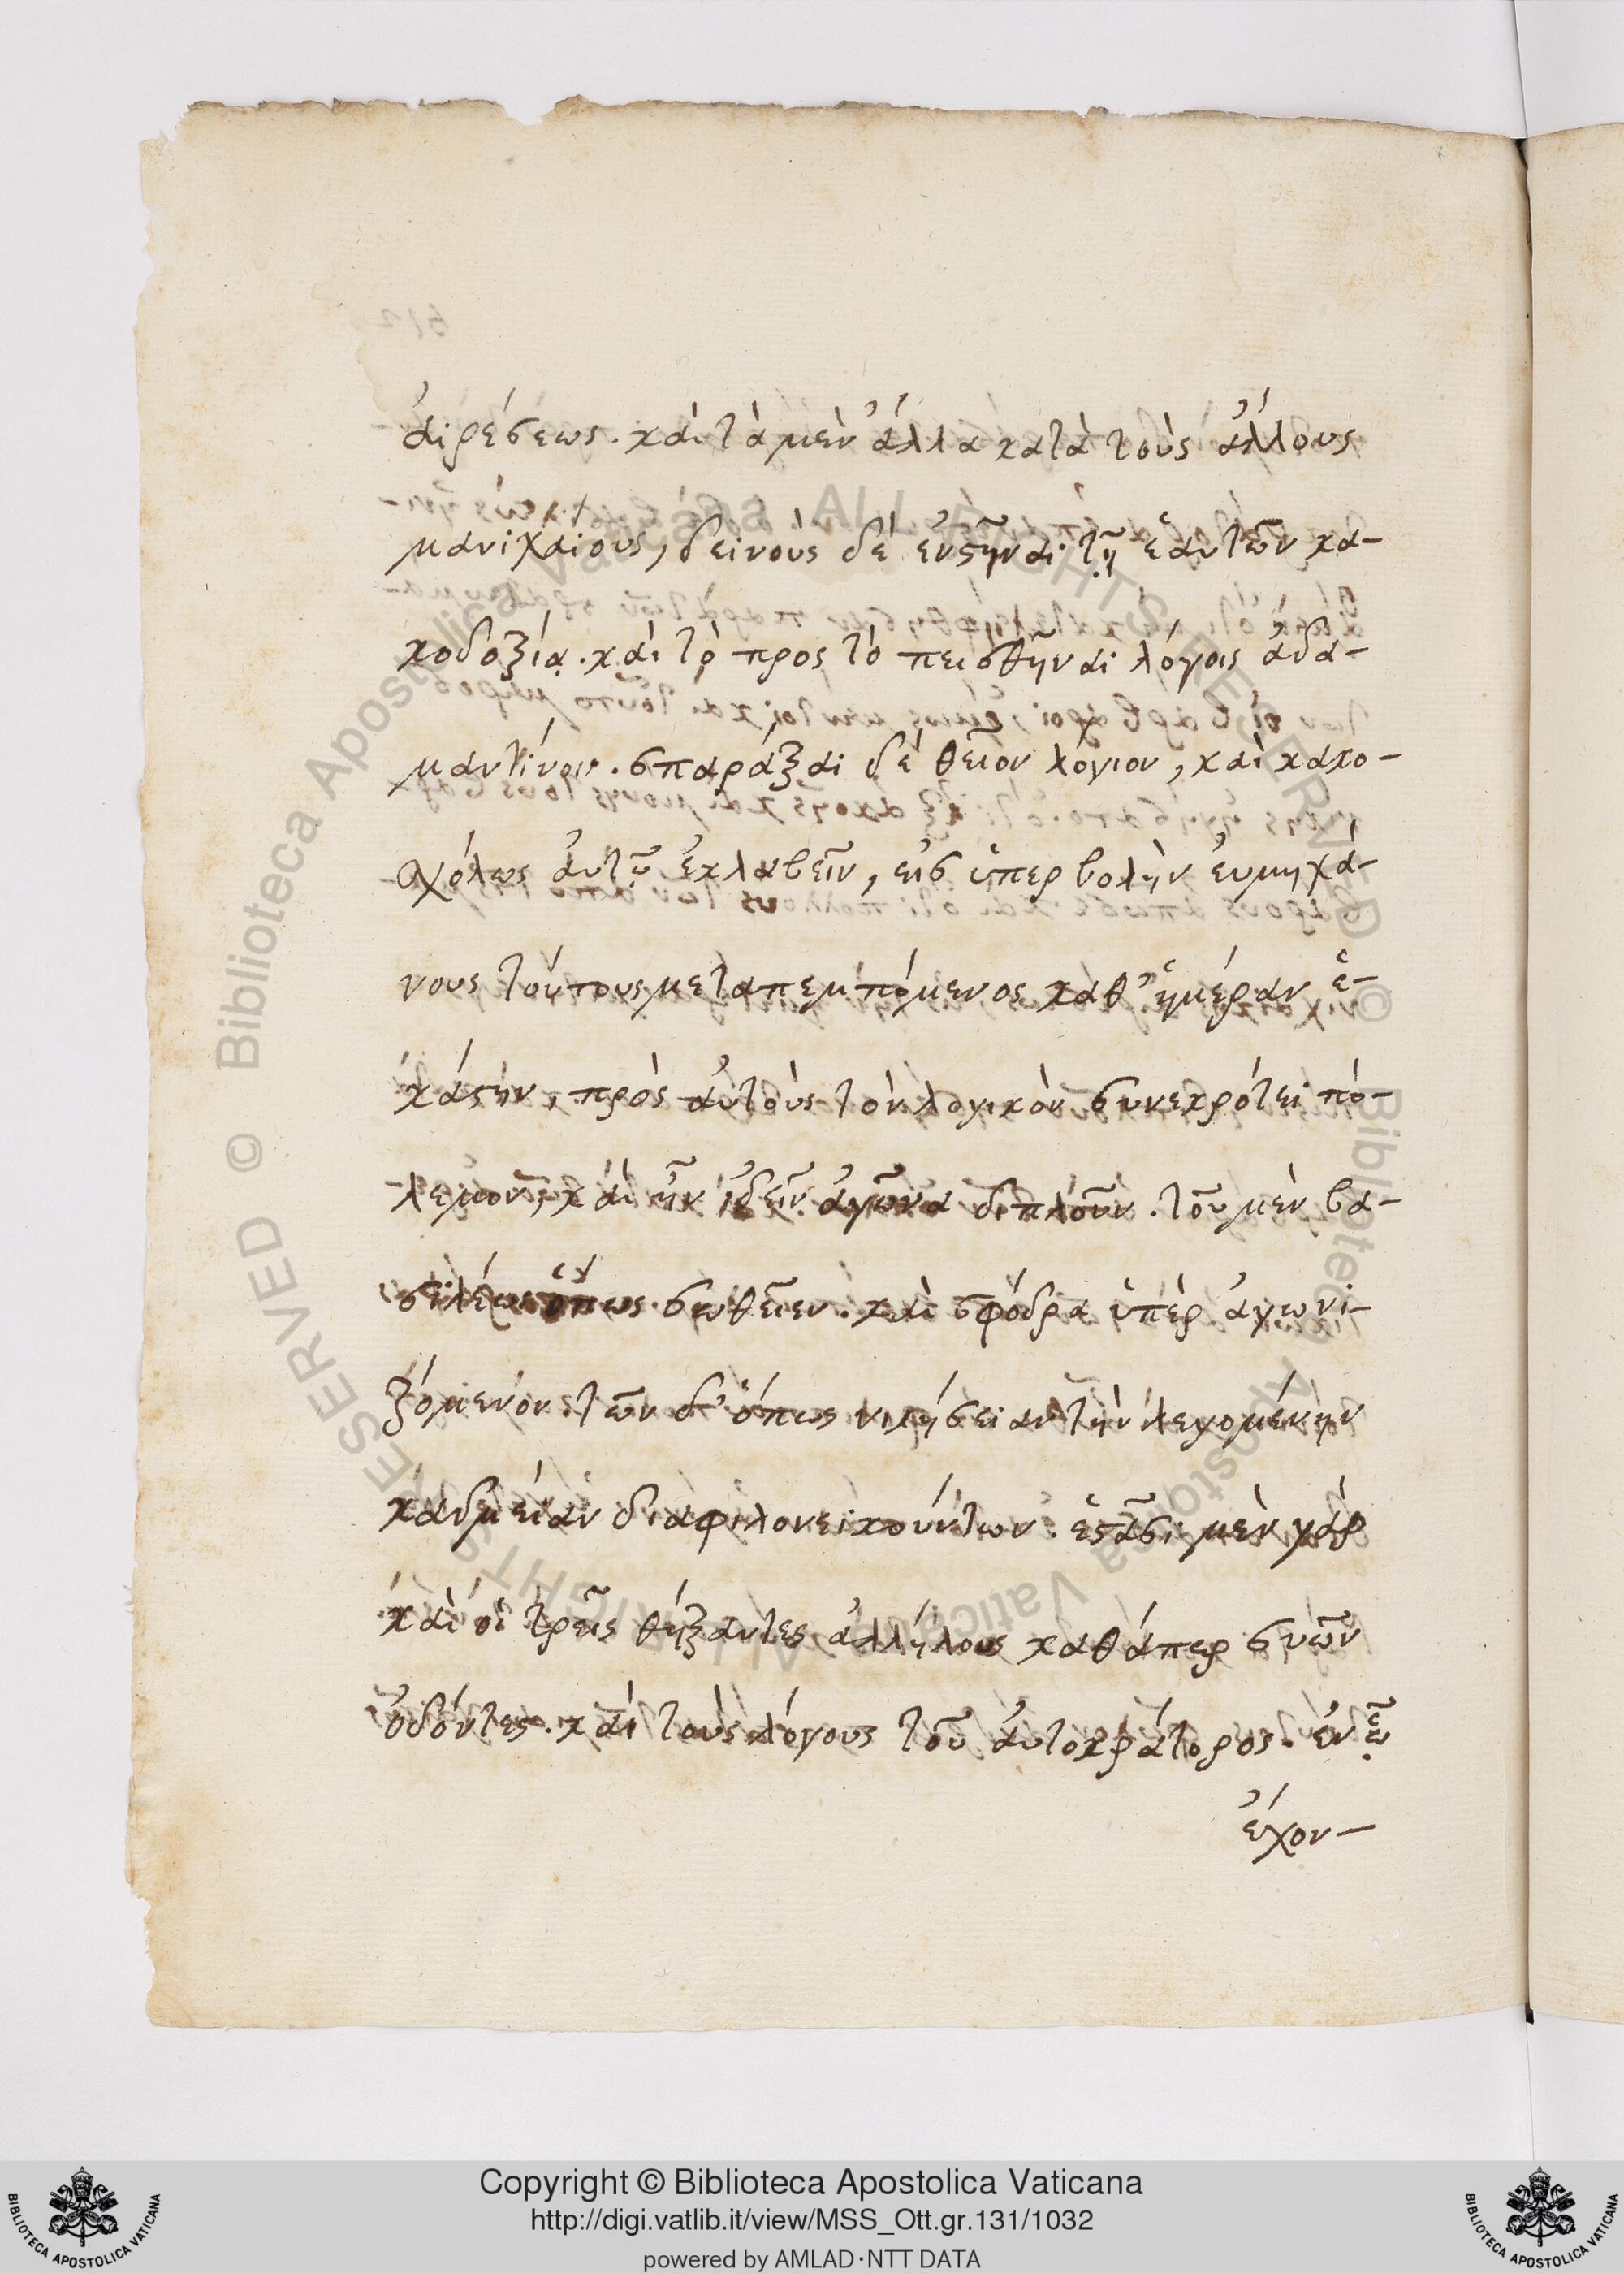 αἱρέσεως. καὶ τὰ μὲν ἄλλα κατὰ τοὺς ἄλλους
μανιχαίους, δεινοὺς δὲ ἐνστῆναι τῇ ἑαυτῶν κα-
κοδοξίᾳ. καὶ τὸ πρὸς τὸ πεισθῆναι λόγοις ἀδα-
μαντίνοις. σπαράξαι δὲ θεῖον λόγιον, καὶ κακο-
σχόλως αὐτῷ ἐκλαβεῖν, εἰς ὑπερβολὴν εὐμηχά-
νους τούτους μεταπεμπόμενος καθ' ἡμέραν ἑ-
κάστην, πρὸς αὐτοὺς τὸν λογικὸν συνεκρότει πό-
λεμον, καὶ ἦν ἰδεῖν ἀγῶνα διπλοῦν. τοῦ μὲν βα-
σιλέως ὅπως σωθεῖεν. καὶ σφόδρα ὑπὲρ ἀγωνι-
ζόμενον. τῶν δ' ὅπως νικήσειαν τὴν λεγομένην
καδμείαν διαφιλονεικούντων. ἑστᾶσι μὲν γὰρ
καὶ οἱ τρεῖς θήξαντες ἀλλήλους καθάπερ συῶν
ὀδόντες. καὶ τοὺς λόγους τοῦ αὐτοκράτορος. ἐν ᾧ
ἔχον-
Copyright © Biblioteca Apostolica Vaticana
http://digi.vatlib.it/view/MSS_Ott.gr.131/1032
powered by AMLAD·NTT DATA
BIBLIOTECA APOSTOLICA VATICANA
BIBLIOTECA APOSTOLICA VATICANA